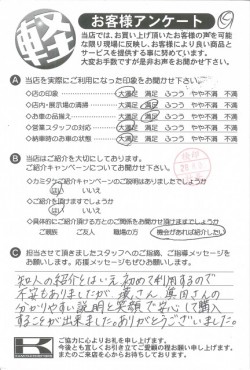 軽
お客様アンケート
当店では、お買い上げ頂いたお客様の声を可能
な限り現場に反映し、お客様により良い商品と
サービスを提供する事に努めています。
大変お手数ですが是非お声をお聞かせ下さい。
A 当店を実際にご利用になった印象をお聞かせ下さい。
◇店の印象 大満足 満足 ふつう やや不満 不満
◇店内・展示場の清掃 大満足 満足 ふつう やや不満 不満
◇お車の品揃え 大満足 満足 ふつう やや不満 不満
◇営業スタッフの対応 大満足 満足 ふつう やや不満 不満
◇納車時のお車の状態 大満足 満足 ふつう やや不満 不満
B 当店はご紹介を大切にしております。
ご紹介キャンペーンについてお聞かせ下さい。
◇カミタケご紹介キャンペーンのご説明はありましたでしょうか
はい いいえ
◇ご紹介を頂けますでしょうか
はい いいえ
◇具体的にご紹介頂ける方とのご関係をお聞かせ頂けますでしょうか
ご親族 ご友人 職場の方 機会があれば紹介したい
C 担当させて頂きましたスタッフへのご指摘、ご指導メッセージを
お願いします。応援メッセージもぜひお願いします。
知人の紹介とはいえ初めて利用するので
不安もありましたが
分かりやすい説明と笑顔で安心して購入
することが出来ました。ありがとうございました。
K
ご協力に心よりお礼を申し上げます。
今後とも宜しくお引き立てご愛顧の程お願い申し上げます。
またのご来店を心からお待ちしております。